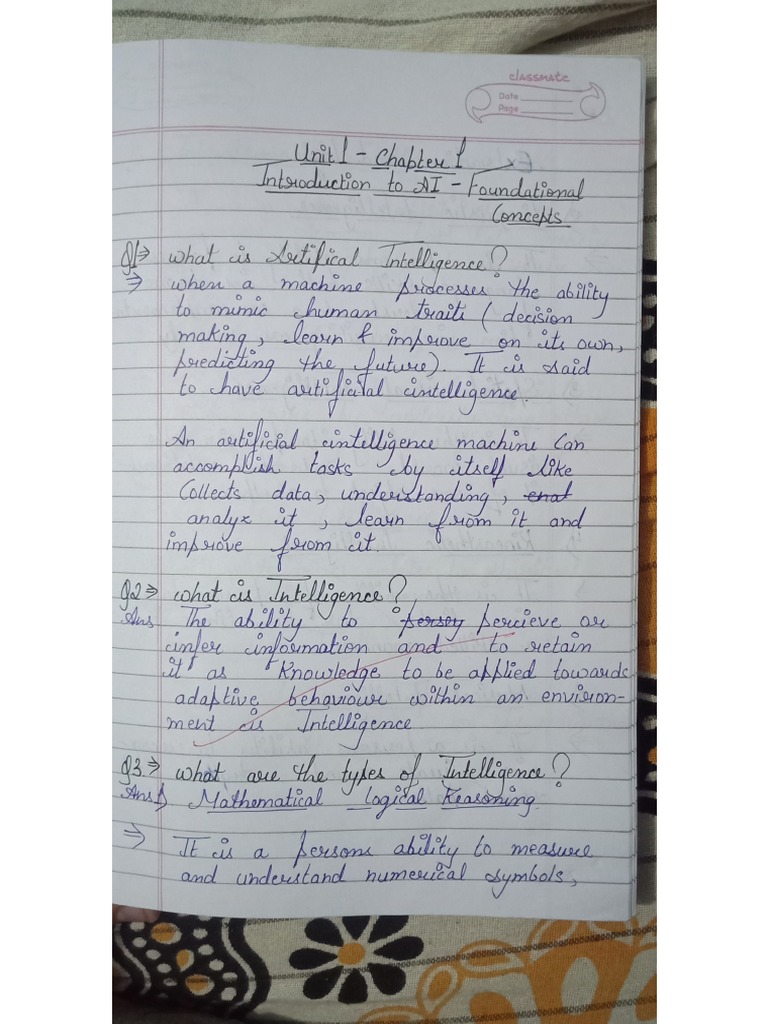 classmate
Date
Page
Unit 1 - Chapter 1
Introduction to AI - Foundational
Concepts
Q1⇒ What is Artifical Intelligence?
⇒ when a machine processes the ability
to mimic human traits (decision
making, learn & improve on its own,
predicting the future). It is said
to have artificial intelligence.
An artificial intelligence machine Can
accomplish tasks by itself like
Collects data, understanding,
analyx it, learn from it and
improve from it.
Q2⇒ what is Intelligence?
Ans The ability to percieve or
infer information and to retain
it as Knowledge to be applied towards
adaptive behaviour within an environ-
ment is Intelligence
Q3.⇒ what are the types of Intelligence?
Ans 1) Mathematical Logical Reasoning
⇒ It is a persons ability to measure
and understand numerical symbols,